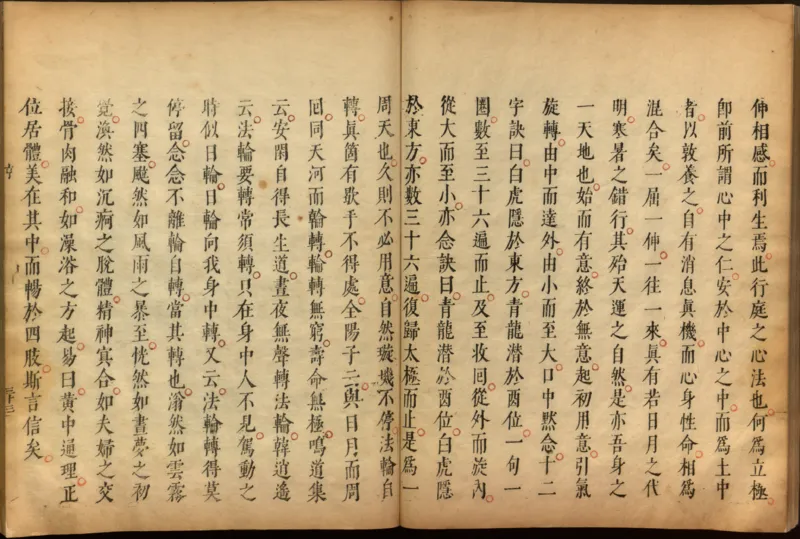 伸相感而利生焉此行庭之心法也何為立極
卽前所謂心中之仁安於中心之中而為土中
者以敦養之自有消息眞機而心身性命相為
混合矣一屈一伸一往一來眞有若日月之代
明寒暑之錯行其殆天運之自然是亦吾身之
一天地也始而有意終於無意起初用意引氣
旋轉由中而達外由小而至大口中默念十二
字訣曰白虎隱於東方靑龍潛於酉位一句一
圈數至三十六遍而止及至收囘從外而旋內
從大而至小亦念訣曰靑龍潛於酉位白虎隱
於東方亦數三十六遍復歸太極而止是為一
周天也久則不必用意自然璇璣不停法輪自
轉眞箇有歇手不得處全陽子云與日月而周
囘同天河而輪轉輪轉無窮壽命無極鳴道集
云安閑自得長生道晝夜無聲轉法輪韓逍遙
云法輪要轉常須轉只在身中人不見駕動之
時似日輪日輪向我身中轉又云法輪轉得莫
停留念念不離輪自轉當其轉也滃然如雲霧
之四塞颼然如風雨之暴至恍然如晝夢之初
覺渙然如沉痾之脫體精神㝠合如夫婦之交
接骨肉融和如澡浴之方起易曰黃中通理正
位居體美在其中而暢於四肢斯言信矣